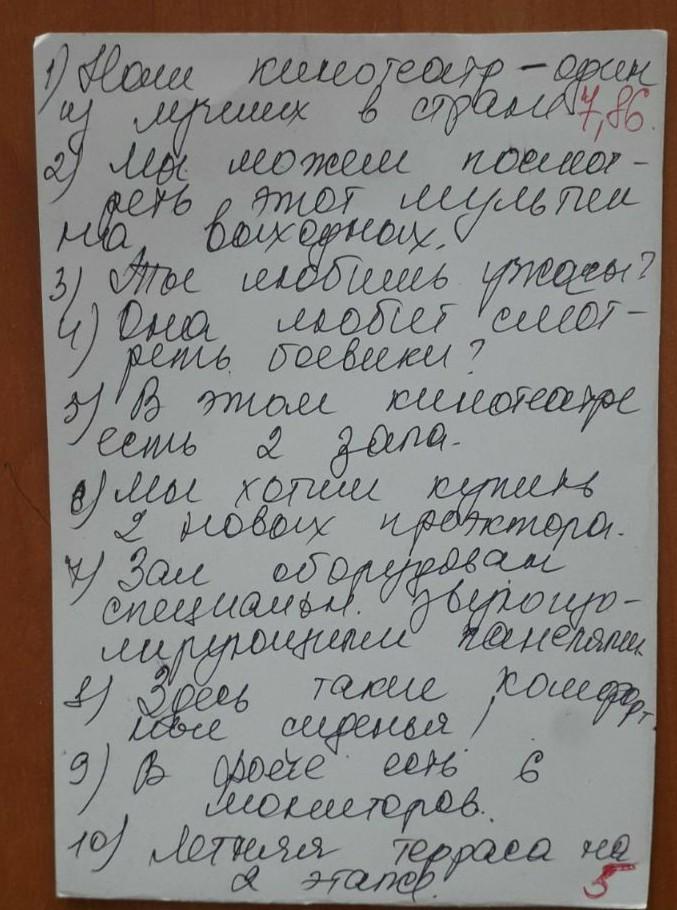 1) Наш кинотеатр – один
из лучших в стране 7,86
2) Мы можем посмот-
реть этот мультик
на выходных.
3) Ты любишь ужасы?
4) Она любит смот-
реть боевики?
5) В этом кинотеатре
есть 2 зала.
6) Мы хотим купить
2 новых проэктора.
7) Зал оборудован
специальн. звукоизо-
лирующими панелями
8) Здесь такие комфорт
ные сиденья!
9) В фойе есть 6
мониторов.
10) Летняя терраса на
2 этаже. 5